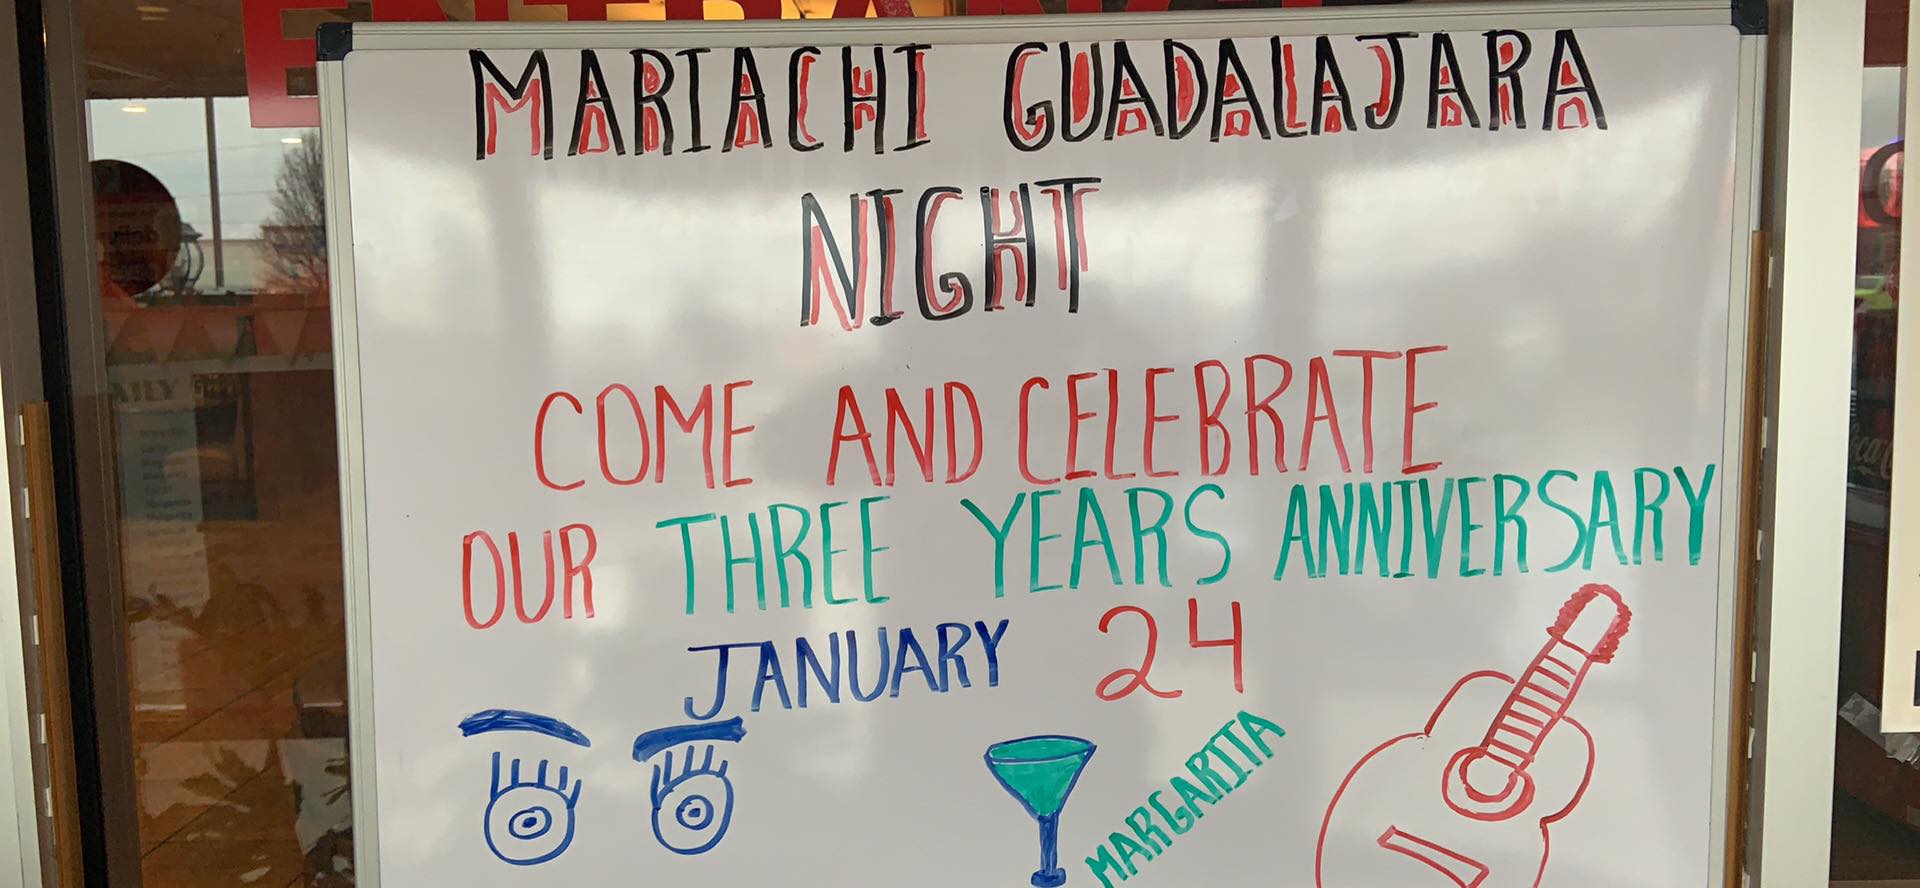 ENTRANCE
MARIACHI GUADALAJARA
NIGHT
COME AND CELEBRATE
OUR THREE YEARS ANNIVERSARY
JANUARY 24
MARGARITA